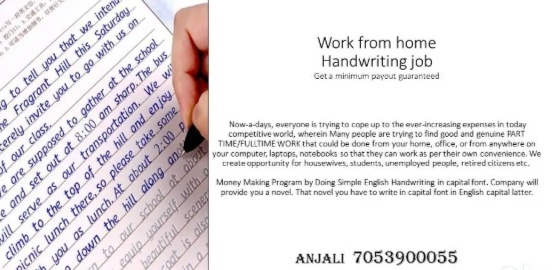 g to tell you that we inten
e Fragrant Hill this Saturday
cerely invite you to go with us on
of our class.
are supposed to gather at the school
e and set out at 8:00 am sharp. The bus
will serve as our transportation. We wi
climb to the top of the hill and enjoy
picnic lunch there, so please take some
th you as lunch. At about 2:00
down the hill along an
to our school at abou
equip yourself with
beautiful scener
Work from home
Handwriting job
Get a minimum payout guaranteed
Now-a-days, everyone is trying to cope up to the ever-increasing expenses in today
competitive world, wherein Many people are trying to find good and genuine PART
TIME/FULLTIME WORK that could be done from your home, office, or from anywhere on
your computer, laptops, notebooks so that they can work as per their own convenience. We
create opportunity for housewives, students, unemployed people, retired citizens etc.
Money Making Program by Doing Simple English Handwriting in capital font. Company will
provide you a novel. That novel you have to write in capital font in English capital latter.
ANJALI 7053900055